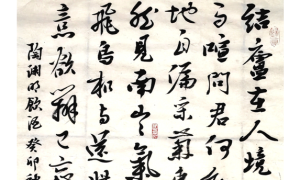 結廬在人境
馬喧問君何
地自偏采菊
然見南山々氣
飛鳥相與還
意欲辨已忘
陶淵明飲酒 癸卯秋